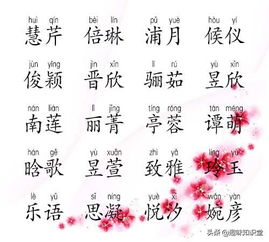 huì qín bèi lín pǔ yuè hòu yí
慧芹 倍琳 浦月 候仪
jùn yǐng jìn xīn lí rú yù xīn
俊颖 晋欣 骊茹 昱欣
nán lián lì jīng tíng róng tán méng
南莲 丽菁 亭蓉 谭萌
hán gē yù xuān zhì yǎ líng yù
晗歌 昱萱 致雅 玲玉
lè yǔ sī níng yuè xī wǎn yàn
乐语 思凝 悦汐 婉彦
头条 @趣味知识堂